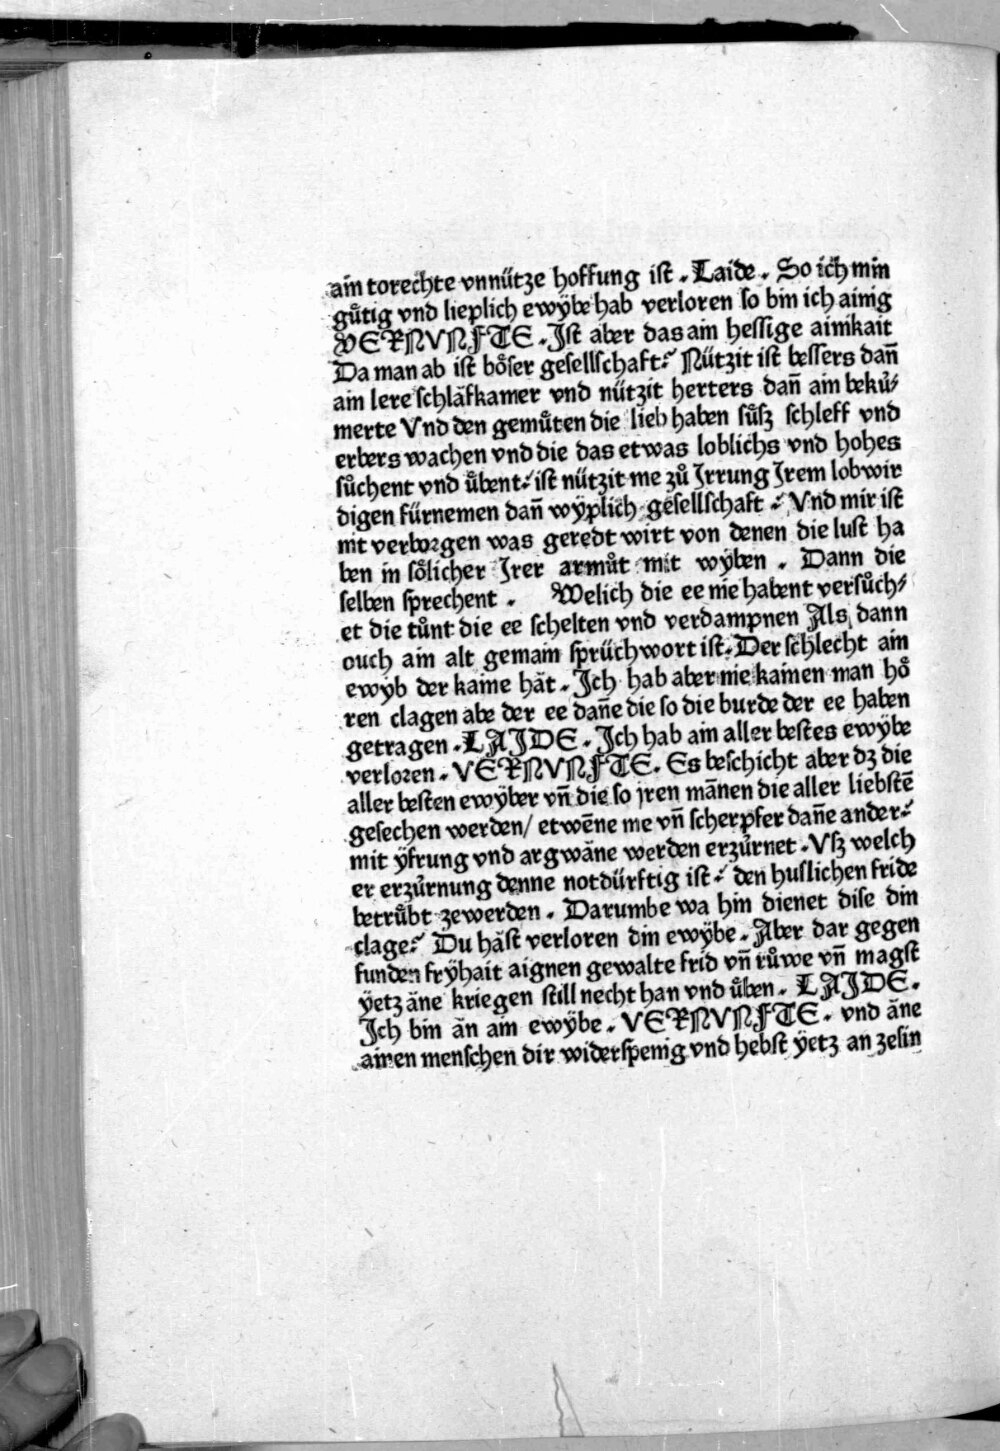 ain torechte vnnütze hoffung ist . Laide . So ich min
gůtig vnd lieplich ewÿbe hab verloren so bin ich ainig
VERNVNFTE . Jst aber das ain hessige ainikait
Da man ab ist bo᷎ser gesellschaft? Nützit ist bessers dañ
ain lere schlăfkamer vnd nützit herters dañ ain bekü⸗
merte Vnd den gemůten die lieb haben sůsz schleff vnd
erbers wachen vnd die das etwas loblichs vnd hohes
sůchent vnd ůbent? ist nützit me zů Jrrung Jrem lobwir
digen fürnemen dañ wÿplich gesellschaft ? Vnd mir ist
nit verborgen was geredt wirt von denen die lust ha
ben in sőlicher Jrer armůt mit wÿben . Dann die
selben sprechent . Welich die ee nie habent versůch⸗
et die tůnt die ee schelten vnd verdampnen Als dann
ouch ain alt gemain sprüchwort ist. Der schlecht ain
ewÿb der kaine hăt . Jch hab aber nie kainen man hő
ren clagen abe der ee dañe die so die burde der ee haben
getragen . LAJDE . Jch hab ain aller bestes ewÿbe
verloren . VERNVNFTE . Es beschicht aber dz die
aller besten ewÿber vñ die so jren mãnen die aller liebstẽ
gesechen werden/ etwẽne me vñ scherpfer dañe ander?
mit ÿfrung vnd argwăne werden erzürnet . Vsz welch
er erzürnung denne notdürftig ist? den huslichen fride
betrůbt zewerden . Darumbe wa hin dienet dise din
clage? Du hăst verloren din ewÿbe . Aber dar gegen
funden frÿhait aignen gewalte frid vñ růwe vñ magst
ÿetz ăne kriegen still necht han vnd ůben . LAJDE .
Jch bin ăn ain ewÿbe . VERNVNFTE . vnd ăne
ainen menschen dir widerspenig vnd hebst ÿetz an zesin